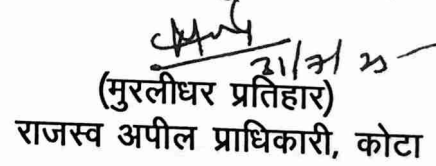 31/7/25
(मुरलीधर प्रतिहार)
राजस्व अपील प्राधिकारी, कोटा